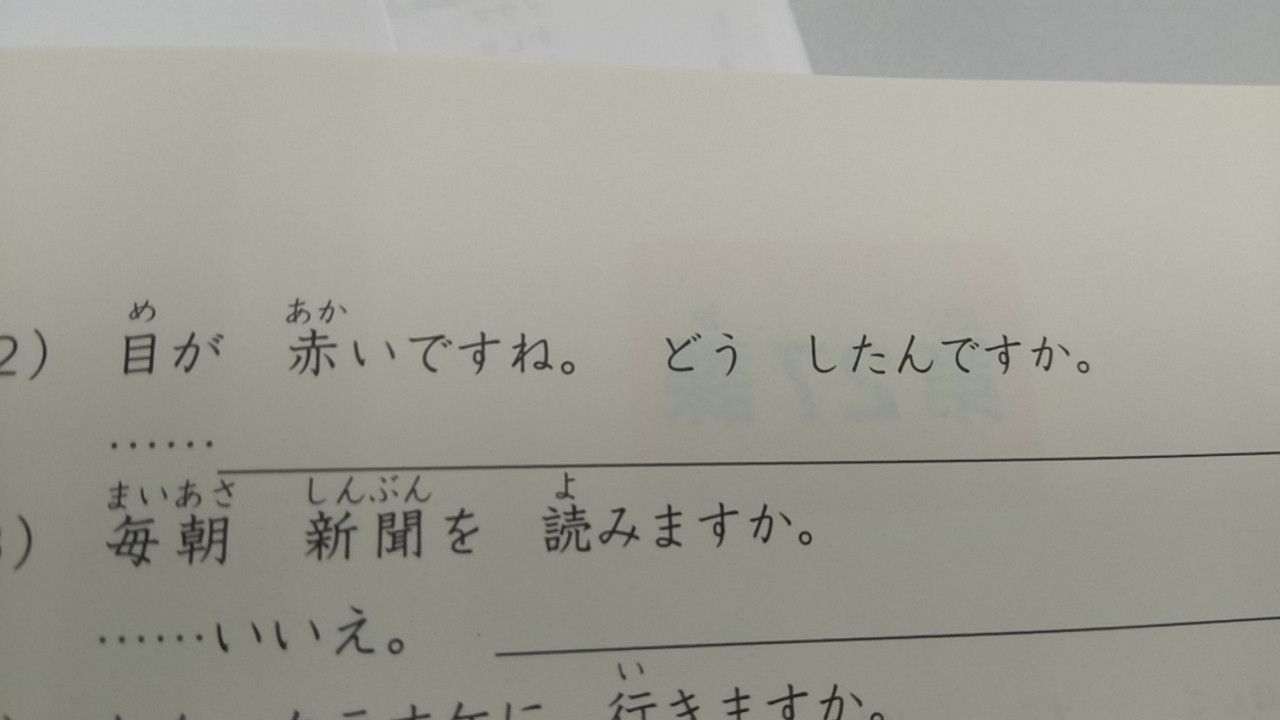 2) 目が 赤いですね。 どう したんですか。
め あか
……
まいあさ しんぶん よ
毎朝 新聞を 読みますか。
……いいえ。
い
カラオケに 行きますか。